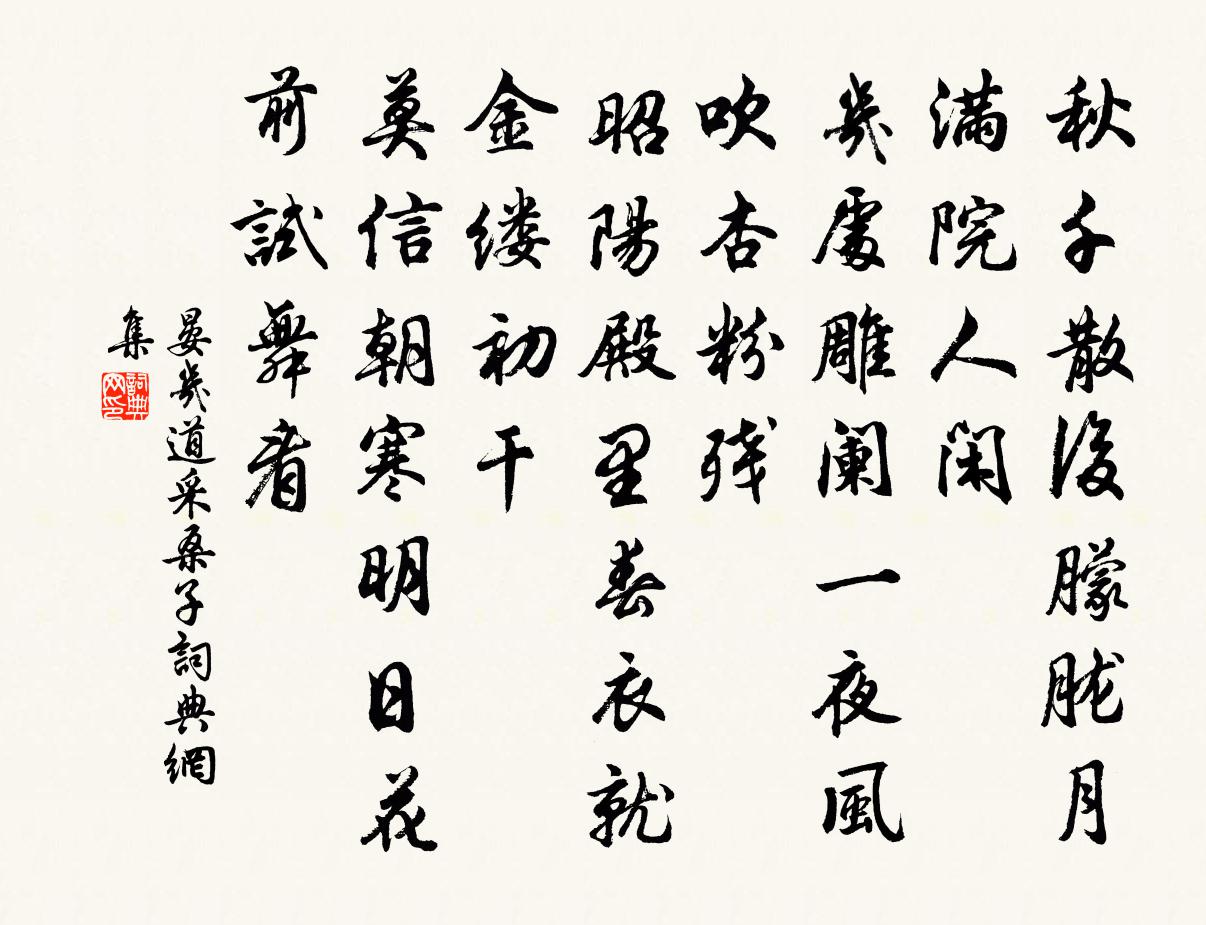 秋千散後朦胧月
满院人闲
幾處雕阑一夜風
吹杏粉残
昭陽殿里春衣就
金缕初干
莫信朝寒明日花
前試舞看
晏幾道采桑子詞典網
集
詞典網印